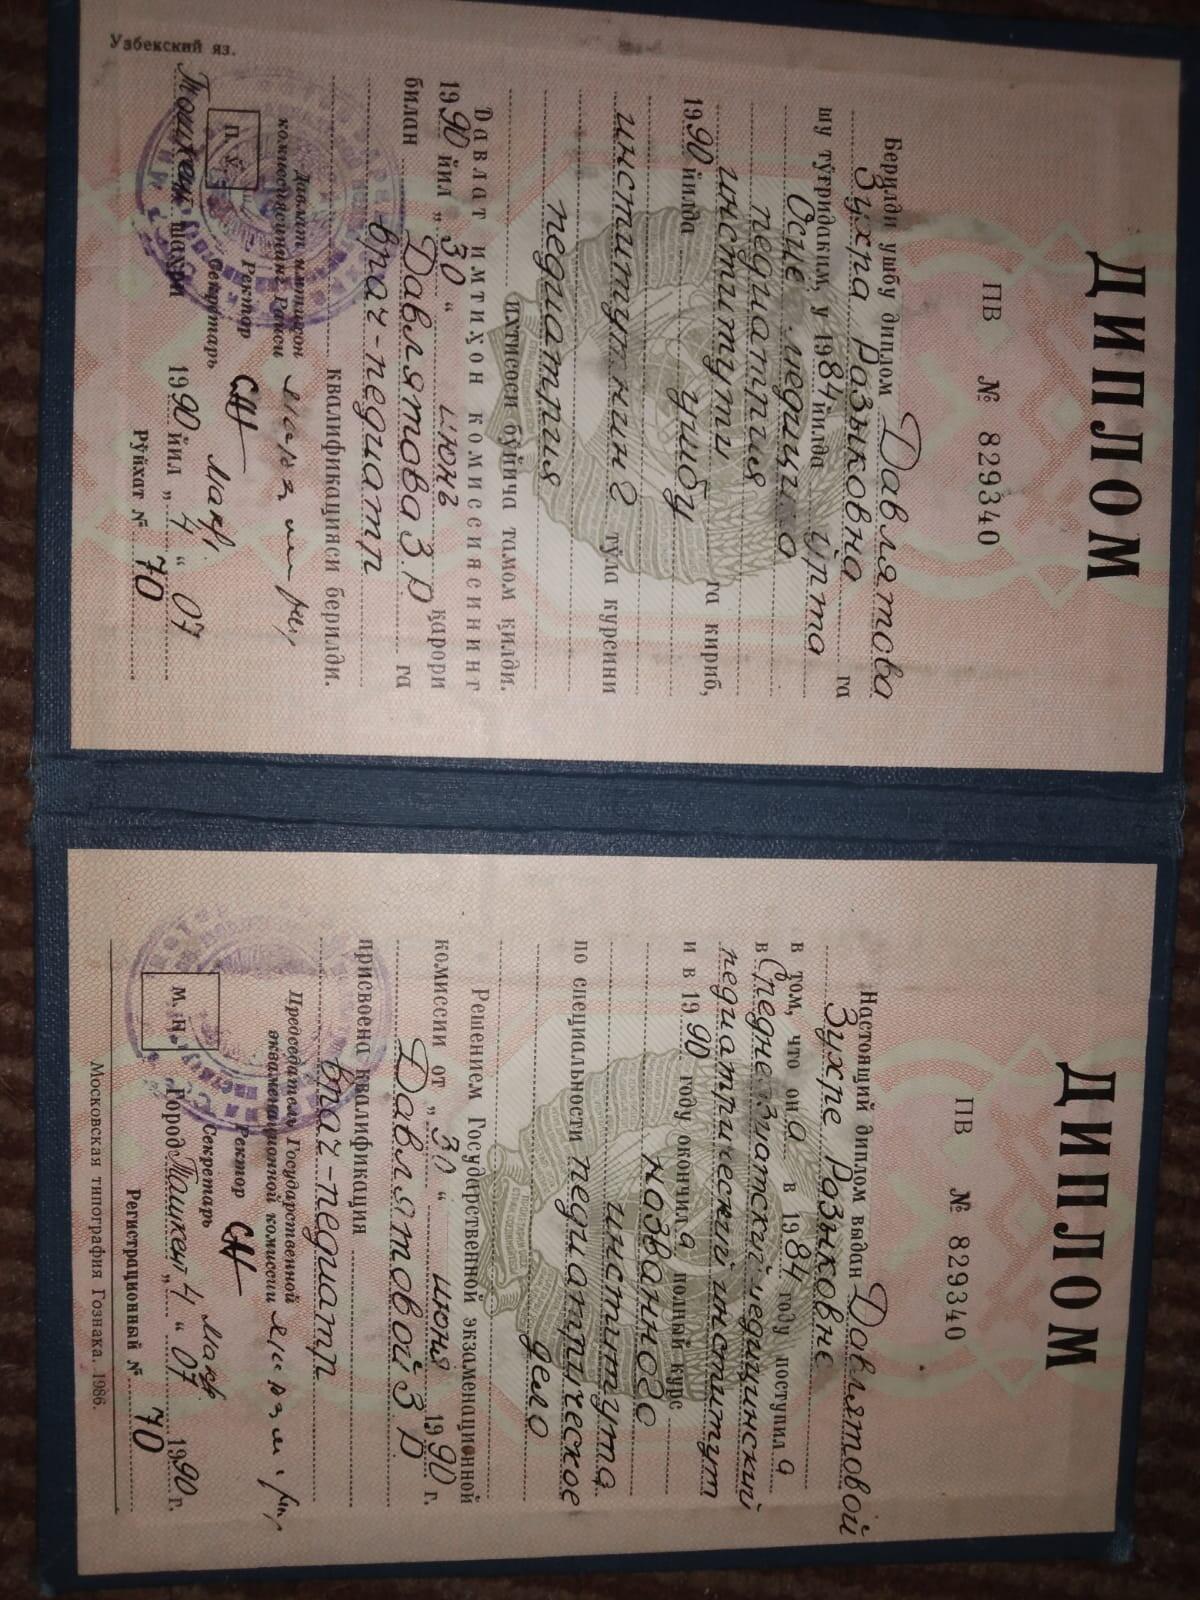 ДИПЛОМ
ПВ № 829340
Берилди ушбу диплом Давлятова
Зухра Разыковна га
шу тўғридаким, у 1984 йилда ўрта
Осиё медицина
педиатрия
институти га кириб,
1990 йилда ушбу
институтнинг тўла курсини
педиатрия
ихтисоси бўйича тамом қилди.
Давлат имтиҳон комиссиясининг
1990 йил „30“ июнь қарори
билан Давлятова З.Р. га
врач-педиатр
квалификацияси берилди.
Давлат имтиҳон
комиссиясининг Раиси
Ректор
Секретарь
П. Ў.
Тошкент шаҳри 1990 йил „4“ 07
Рўйхат № 70
Узбекский яз.
ДИПЛОМ
ПВ № 829340
Настоящий диплом выдан Давлятовой
Зухре Разыковне
в том, что она в 1984 году поступила
в Среднеазиатский медицинский
педиатрический институт
и в 1990 году окончила полный курс
названного
института
по специальности педиатрическое
дело
Решением Государственной экзаменационной
комиссии от „30“ июня 1990 г.
Давлятовой З.Р.
присвоена квалификация
врач-педиатр
Председатель Государственной
экзаменационной комиссии
Ректор
Секретарь
М. П.
Город Ташкент „4“ 07 1990 г.
Регистрационный № 70
Московская типография Гознака. 1986.